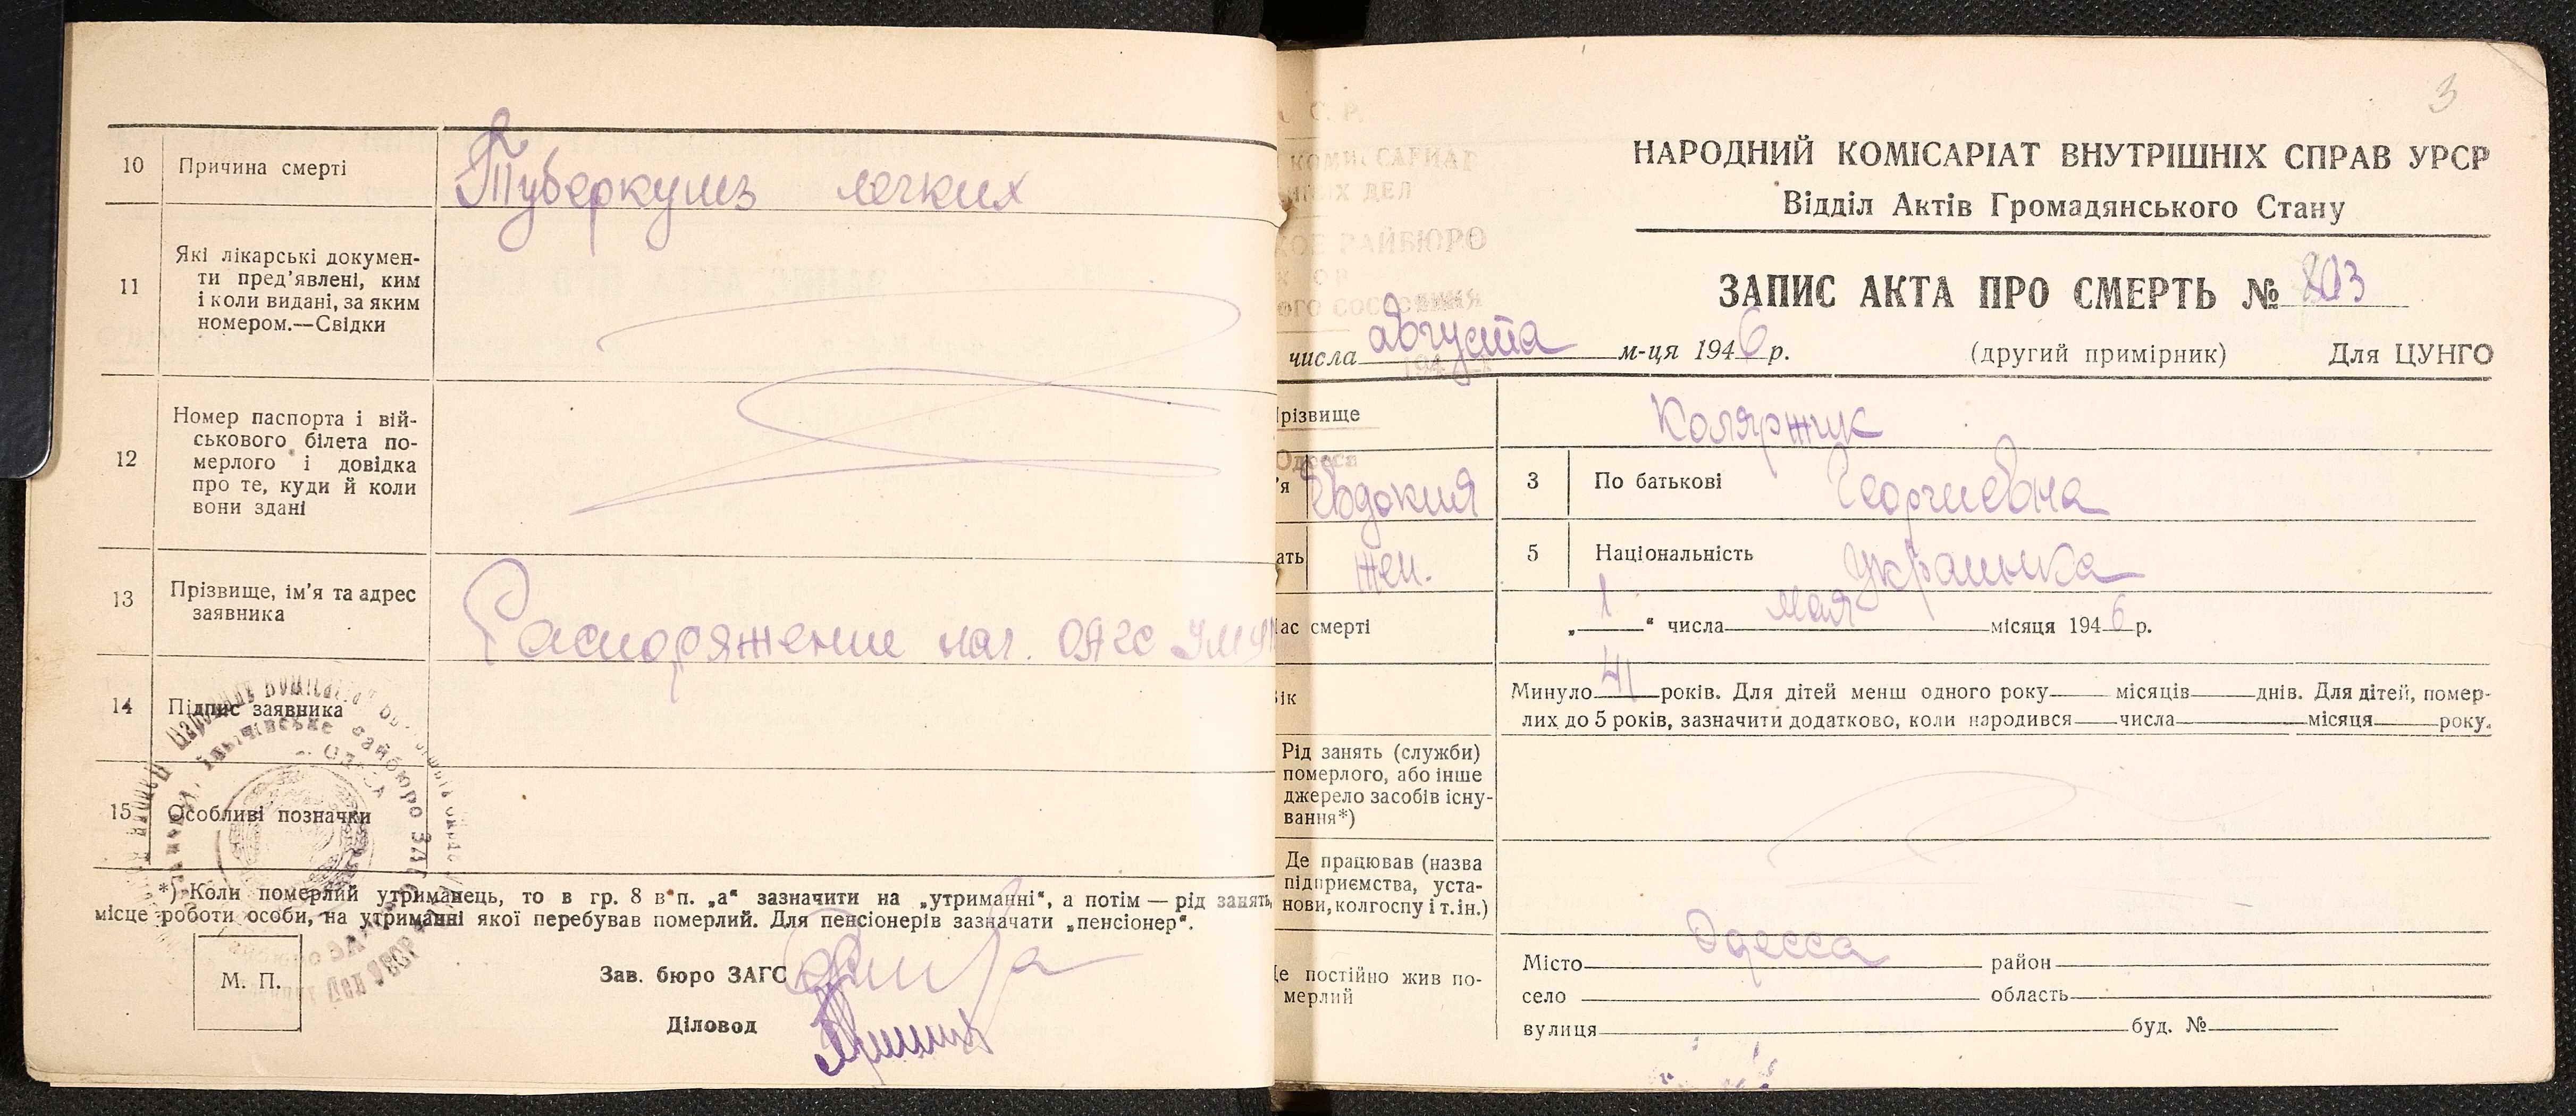 10 Причина смерти Туберкулез легких
11 Які лікарські докумен-
ти пред’явлені, ким
і коли видані, за яким
номером.—Свідки
12 Номер паспорта і вій-
ськового білета по-
мерлого і довідка
про те, куди й коли
вони здані
13 Прізвище, ім’я та адрес
заявника
Распоряжение нач. ОАГС УМВД
14 Підпис заявника
15 Особливі позначки
*) Коли померлий утриманець, то в гр. 8 в п. „а“ зазначити на „утриманні“, а потім — рід занять,
місце роботи особи, на утриманні якої перебував померлий. Для пенсіонерів зазначати „пенсіонер“.
М. П.
Зав. бюро ЗАГС
Діловод
3
НАРОДНИЙ КОМІСАРІАТ ВНУТРІШНІХ СПРАВ УРСР
Відділ Актів Громадянського Стану
ЗАПИС АКТА ПРО СМЕРТЬ № 803
числа августа м-ця 1946 р. (другий примірник) Для ЦУНГО
різвище Коляржик
’я Евдокия 3 По батькові Георгиевна
ать жен. 5 Національність украинка
ас смерті „1“ числа мая місяця 1946 р.
ік Минуло 41 років. Для дітей менш одного року місяців днів. Для дітей, помер-
лих до 5 років, зазначити додатково, коли народився числа місяця року.
Рід занять (служби)
померлого, або інше
джерело засобів існу-
вання*)
Де працював (назва
підприємства, уста-
нови, колгоспу і т. ін.)
е постійно жив по-
мерлий
Місто Одесса район
село область
вулиця буд. №